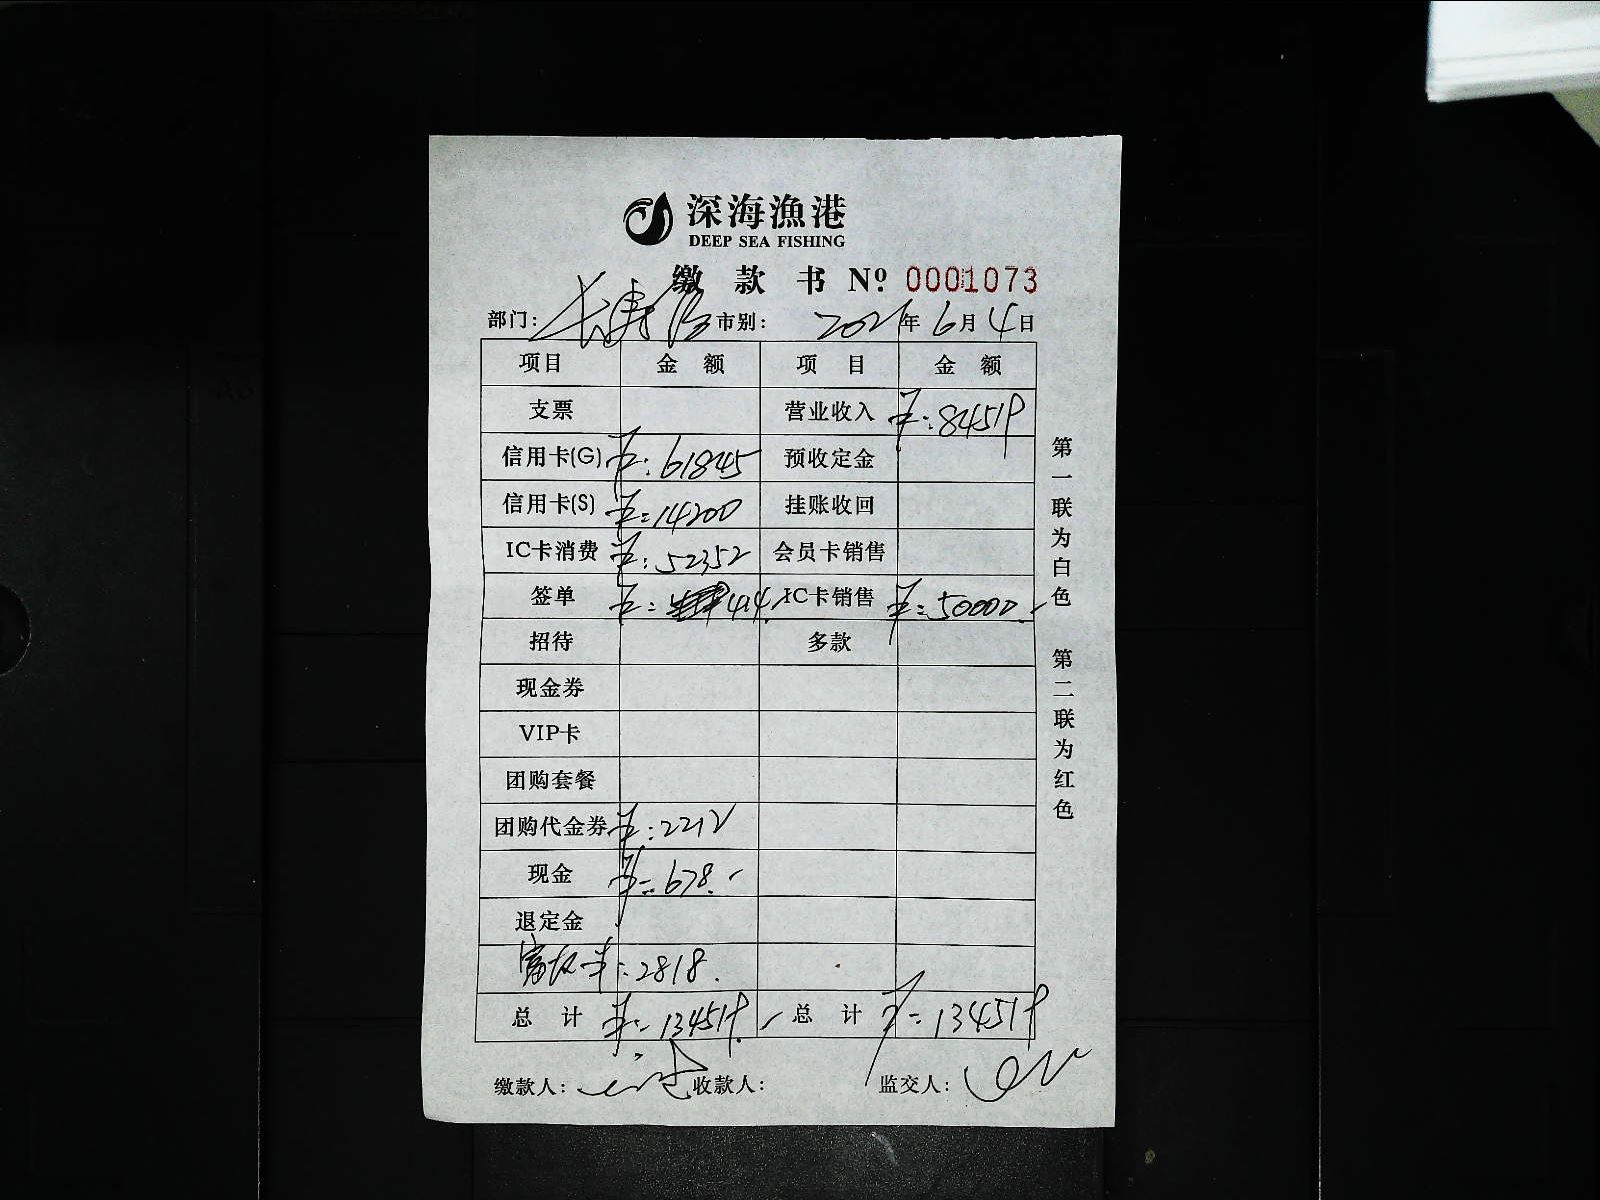 深海漁港
DEEP SEA FISHING
缴款书 Nº: 0001073
部门: 市别: 2021年6月4日
项目 金额 项目 金额
支票 营业收入 ¥:84519
信用卡(G) ¥:61845 预收定金
信用卡(S) ¥:14200 挂账收回
IC卡消费 ¥:52352 会员卡销售
签单 ¥:414.- IC卡销售 ¥:50000.-
招待 多款
现金券
VIP卡
团购套餐
团购代金券 ¥:2212
现金 ¥:678.-
退定金
富友 ¥:2818.
总计 ¥:134519.- 总计 ¥:134519
缴款人: 收款人: 监交人:
第一联为白色
第二联为红色